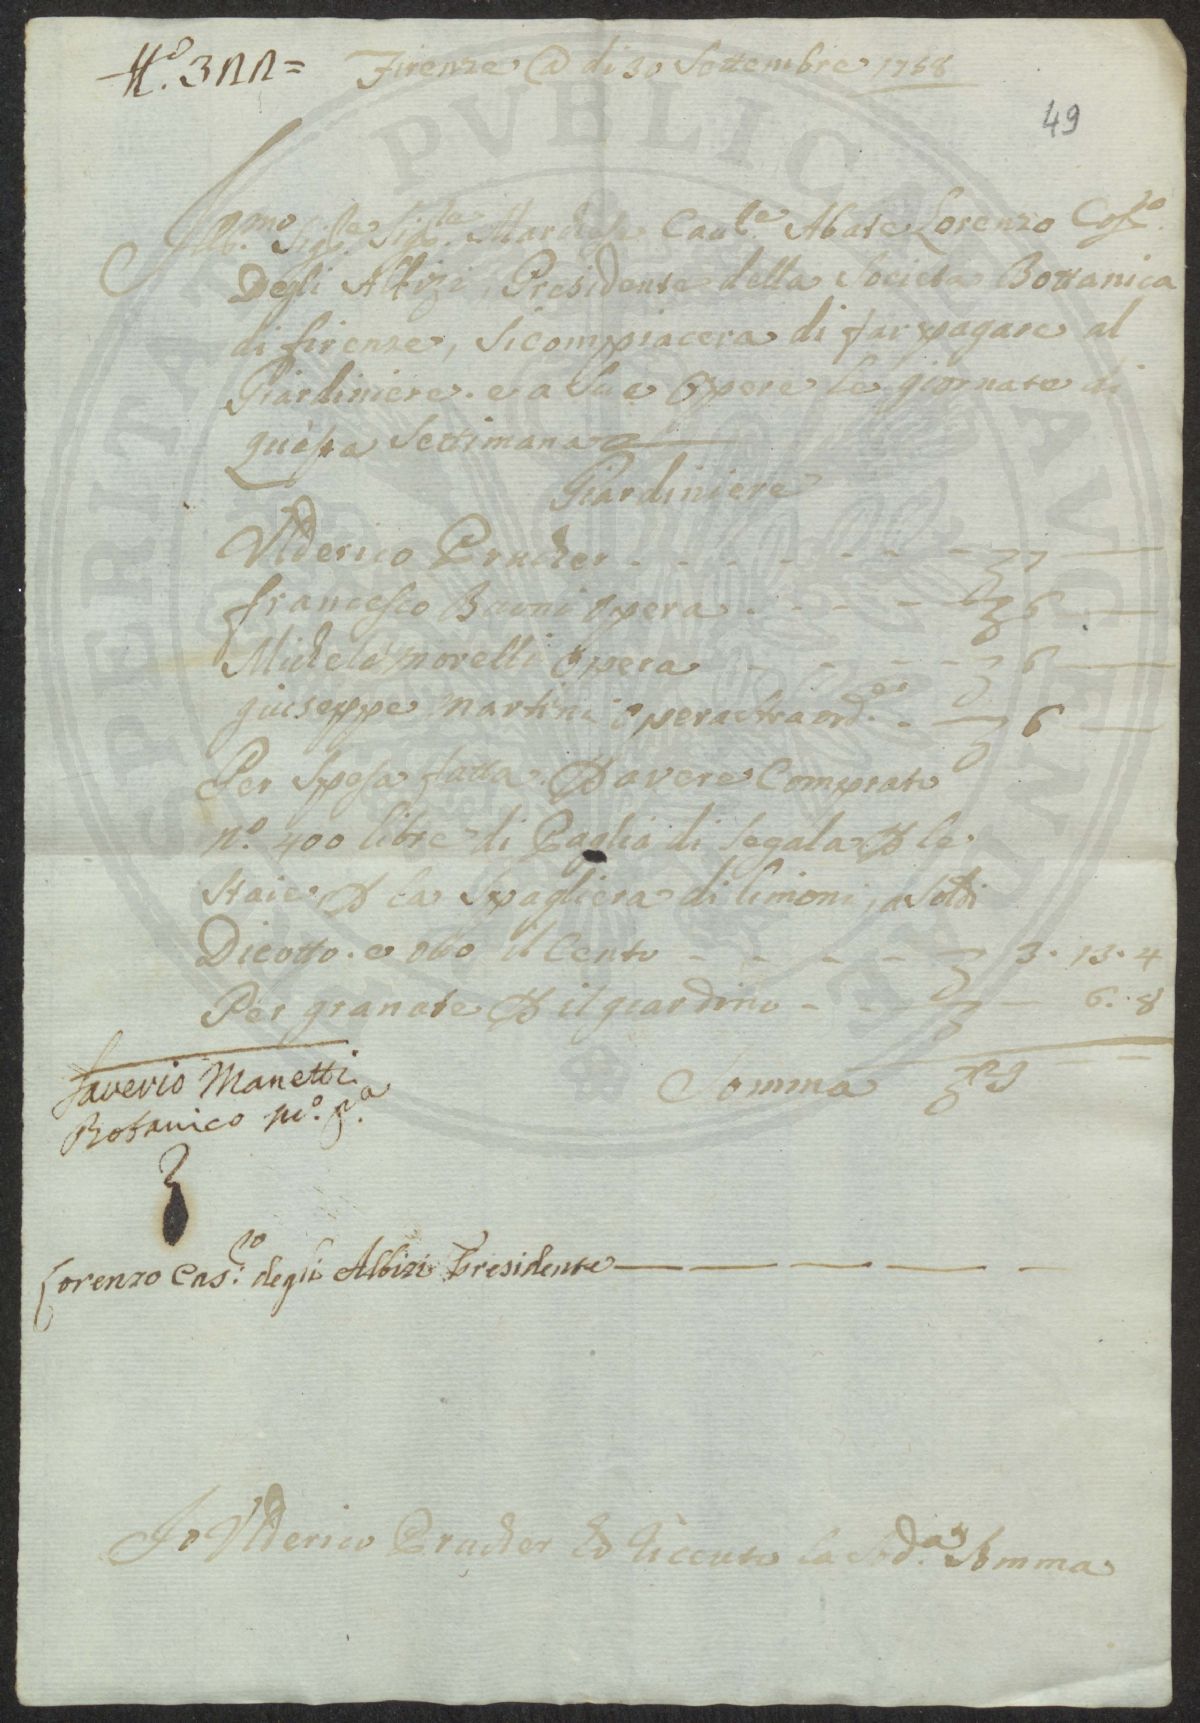 Firenze @ di 30 Settembre 1758
49
Ill.mo Sig.re Sig.re Marchese Caul.e Abate Lorenzo Cos.o
Degli Albizi, Presidente della Societa Bottanica
di firenze, Si compiacera di far pagare al
Giardiniere. e a Sue Opere le giornate di
questa Settimana
Giardiniere
Vlderico Prucker - - - - - - 7 —
francesco Bauni Opera - - - - 6 —
Michele morelli Opera - - - - 6 —
giuseppe martini Opera straord.a - 6 —
Per Spesa fatta P avere Comprato
n.o 400 libre di Paglia di Segala P le
Staie P la Spagliera di limoni, a Soldi
Dicotto. e otto il Cento - - - - 3. 13. 4
Per granate P il giardino - - - — 6. 8
Somma 29 —
Saverio Manetti
Botanico m.o p.a
Lorenzo Cas.o degli Albizi Presidente — — — — —
Io Vlderico Prucker ho riceuto la Sud.a Somma
PVBLICAE